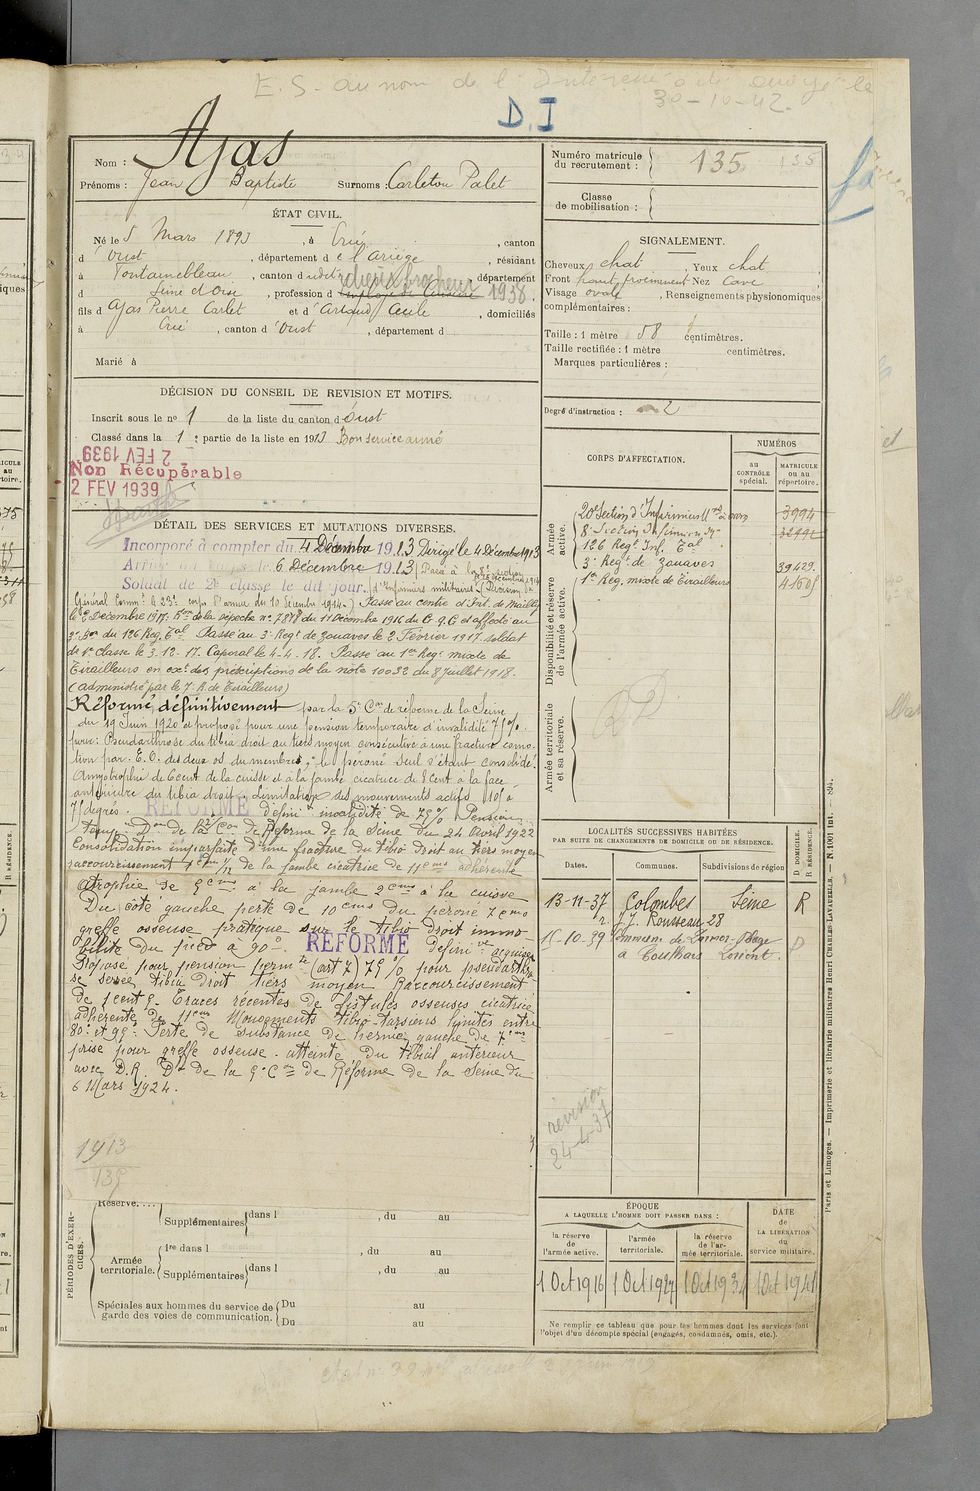 E. S. au nom de l'Intéressé
30-10-42.
D.I
Nom : Ajas
Prénoms : Jean Baptiste Surnoms : Carleton Palet
ÉTAT CIVIL.
Né le 5 Mars 1893, à Crié, canton
d'Oust, département de l'Ariège, résidant
à Fontainebleau, canton dudit, département
d Seine et Oise, profession d 1938.
fils d'Ajas Pierre Carlet et d'Artaud Cecile, domiciliés
à Crié, canton d'Oust, département d
Marié à
DÉCISION DU CONSEIL DE REVISION ET MOTIFS.
Inscrit sous le nº 1 de la liste du canton d'Oust
Classé dans la 1e partie de la liste en 1913 Bon service armé
2 FEV 1939
Non Récupérable
2 FEV 1939
DÉTAIL DES SERVICES ET MUTATIONS DIVERSES.
Incorporé à compter du 4 Décembre 1913 Dirigé le 4 Décembre 1913
Arrivé au Corps le 6 Décembre 1913 Passé à la 8e section
Soldat de 2e classe le dit jour. d'Infirmiers militaires.
Général Commt le 23e corps d'armée du 10 Décembre 1914.) Passé au centre d'Inst. de Mailly
le 2 Décembre 1917. Don de la dépêche nº 7878 du 11 Décembre 1916 du G.Q.G et affecté au
3e Bon du 126 Reg. Tal Passé au 3e Regt de Zouaves le 2 Février 1917. soldat
de 1e classe le 3.12.17. Caporal le 4.4.18. Passé au 1er Regt mixte de
Tirailleurs en exon des prescriptions de la note 10032 du 8 juillet 1918.
(administré par le 7e R. de Tirailleurs)
Réformé définitivement par la 5e Con de réforme de la Seine
du 19 Juin 1920 et proposé pour une pension temporaire d'invalidité 75%
pour : Pseudarthrose du tibia droit au tiers moyen consécutive à une fracture commo-
tion par E.O. des deux os du membre, le péroné seul s'étant consolidé.
Amyotrophie de 6 cent de la cuisse et à la jambe cicatrice de 8 cent à la face
antérieure du tibia droit. Limitation des mouvements actifs 105 à
75 degrés. RÉFORMÉ définit invalidité de 75% Pension
temp. Don de la 2e Con de Réforme de la Seine du 24 Avril 1922
Consolidation imparfaite d'une fracture du tibia droit au tiers moyen
raccourcissement 1cm 1/2 de la jambe cicatrice de 11cms adhérente
atrophie de 5cms à la jambe 2cms à la cuisse
Du côté gauche perte de 10cms du péroné 7cms
greffe osseuse pratiquée sur le tibia droit immo-
bilité du pied à 90°. RÉFORMÉ définive
Proposé pour pension permte (art 7) 75% pour pseudarthro-
se serrée tibia droit tiers moyen Raccourcissement
de 1 cent 5. Traces récentes de fistules osseuses cicatrice
adhérente de 11cms Mouvements tibio-tarsiens limités entre
80° et 95° Perte de substance de péroné gauche de 7cms
prise pour greffe osseuse. atteinte du tibial antérieur
avec D.R. Don de la 5e Con de Réforme de la Seine du
6 Mars 1924.
1913
135
PÉRIODES D'EXERCICES.
Réserve....
Supplémentaires dans l , du au
Armée territoriale.
1re dans l , du au
Supplémentaires dans l , du au
Spéciales aux hommes du service de garde des voies de communication.
Du au
Du au
Numéro matricule du recrutement : 135
Classe de mobilisation :
SIGNALEMENT.
Cheveux chat, Yeux chat
Front haut, proéminent Nez cave
Visage ovale, Renseignements physionomiques
complémentaires :
Taille : 1 mètre 58 centimètres.
Taille rectifiée : 1 mètre centimètres.
Marques particulières :
Degré d'instruction : 2
CORPS D'AFFECTATION.
NUMÉROS
au CONTRÔLE spécial.
MATRICULE ou au répertoire.
Armée active.
20e Section d'Infirmiers 3994
8e Section Infirmiers
126 Regt Inf. Tal
3e Regt de Zouaves 39429.
1er Reg. mixte de Tirailleurs 41605
Disponibilité et réserve de l'armée active.
Armée territoriale et sa réserve.
LOCALITÉS SUCCESSIVES HABITÉES
PAR SUITE DE CHANGEMENTS DE DOMICILE OU DE RÉSIDENCE.
Dates. Communes. Subdivisions de région D DOMICILE. R RÉSIDENCE.
13-11-37 Colombes Seine R
r. J.J. Rousseau 28
15-10-39 Commune de Larmor-Plage D
à Toulhars Lorient.
révision
24-4-37
ÉPOQUE
A LAQUELLE L'HOMME DOIT PASSER DANS :
la réserve de l'armée active.
l'armée territoriale.
la réserve de l'armée territoriale.
DATE de LA LIBÉRATION du service militaire.
1 Oct 1916 1 Oct 1927 1 Oct 1934 1 Oct 1941
Ne remplir ce tableau que pour les hommes dont les services font
l'objet d'un décompte spécial (engagés, condamnés, omis, etc.).
Paris et Limoges. — Imprimerie et librairie militaires Henri CHARLES-LAVAUZELLE.